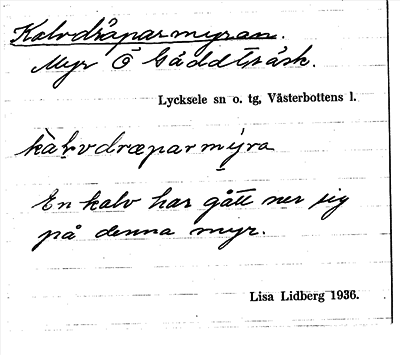 Kalvdräparmyran.
Myr Ö Gäddträsk.
Lycksele sn o. tg, Västerbottens l.
kàḷvdræparmýra
En kalv har gått ner sig
på denna myr.
Lisa Lidberg 1936.